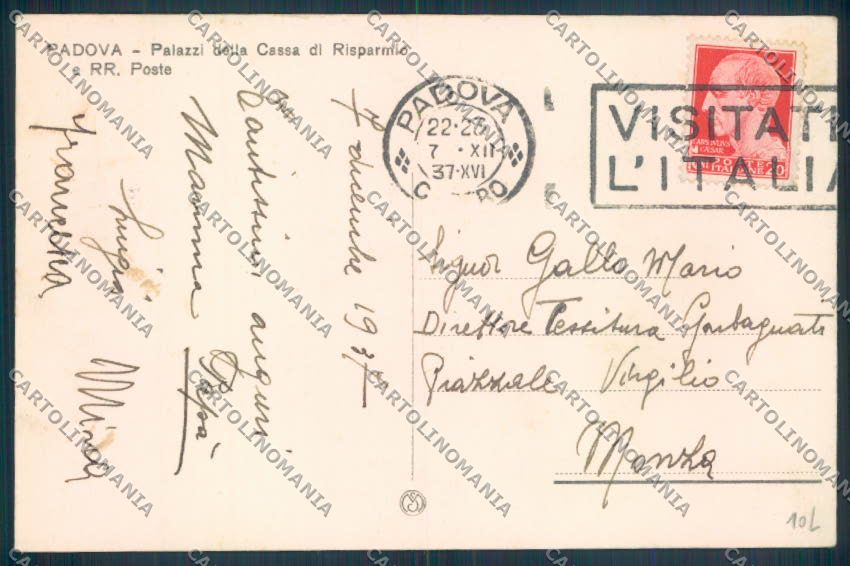 PADOVA - Palazzi della Cassa di Risparmio
e RR. Poste
PADOVA
22-23
7 . XII
37-XVI
VISITAT
L'ITALIA
CAIVS IVLIVS
CAESAR
POSTE
ITALIANE 20
7 dicembre 1937
Tantissimi auguri
Mamma Papà
Luigia
Francesca
Mina
Signor Gallo Mario
Direttore Tessitura Garbagnati
Piazzale Virgilio
Manza
10L
CARTOLINOMANIA